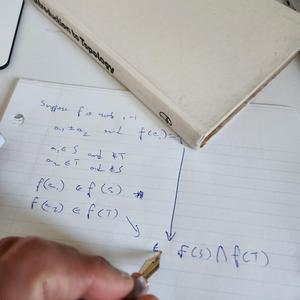 Introduction to Topology
Suppose f is not 1-1
a₁ ≠ a₂ and f(a₁) =
a₁ ∈ S and ∉ T
a₂ ∈ T and ∉ S
f(a₁) ∈ f(S)
f(a₂) ∈ f(T)
∈ f(S) ⋂ f(T)